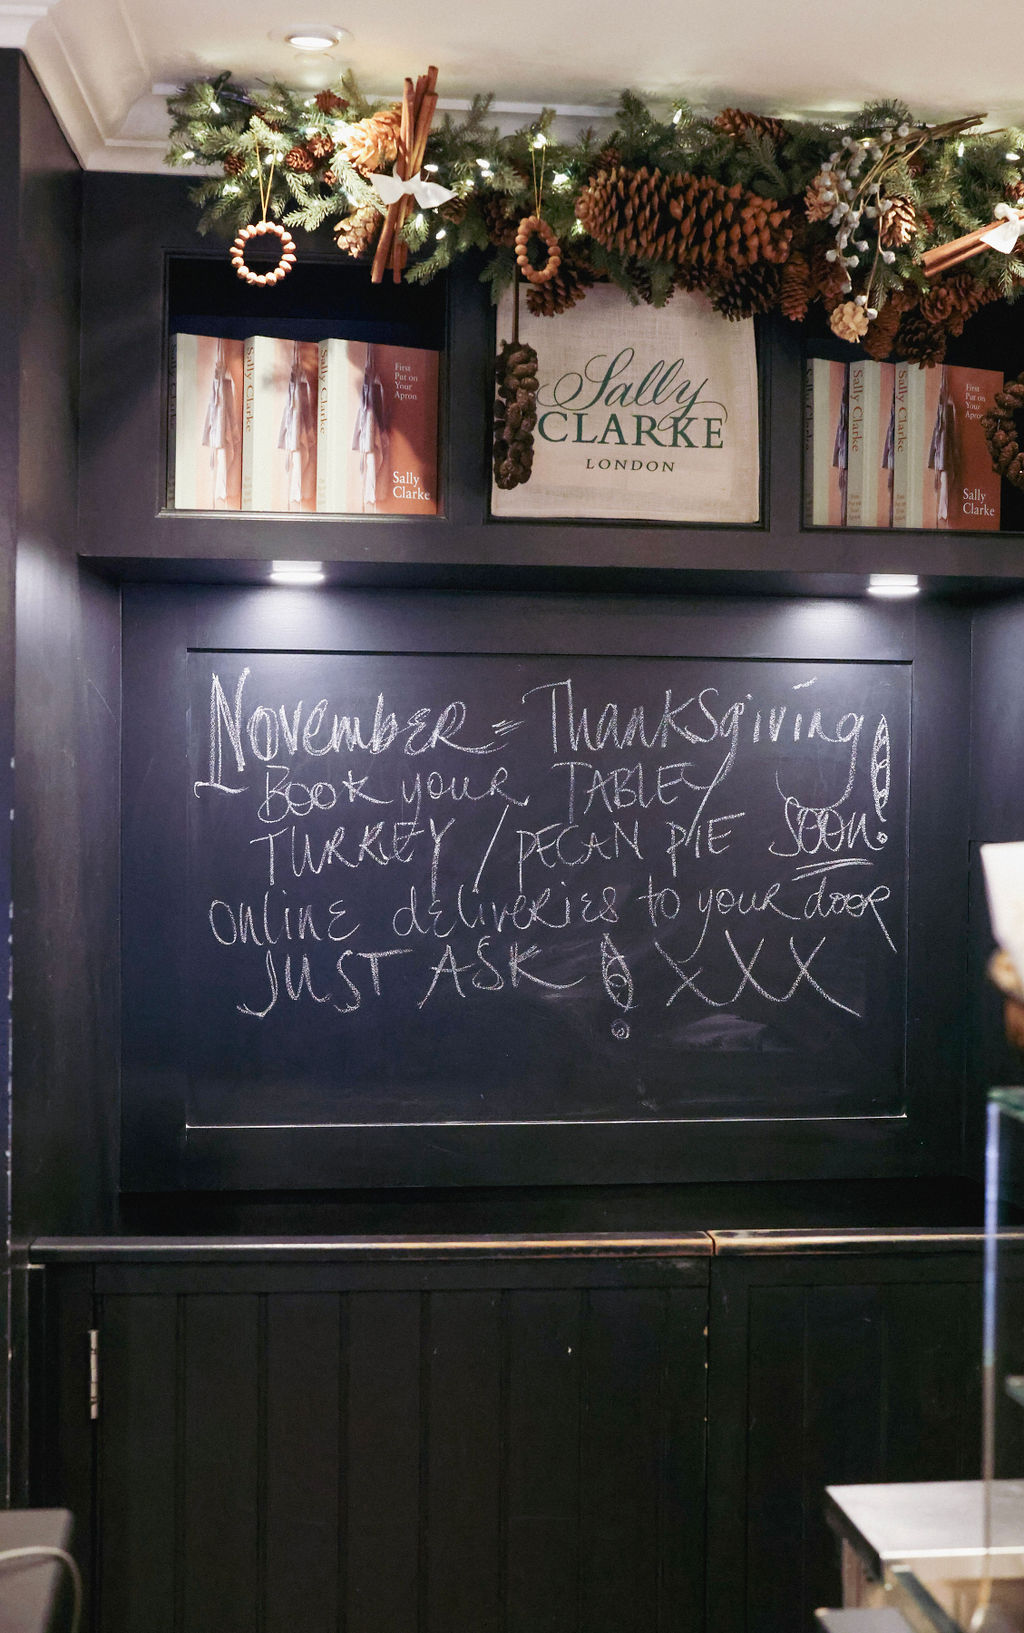 Sally Clarke
Sally Clarke
Sally Clarke
First
Put on
Your
Apron
Sally
Clarke
Sally
CLARKE
LONDON
Sally Clarke
Sally Clarke
Sally Clarke
First
Put on
Your
Apron
Sally
Clarke
November = Thanksgiving!
Book your TABLE/
TURKEY / PECAN PIE SOON!
online deliveries to your door
JUST ASK! XXX